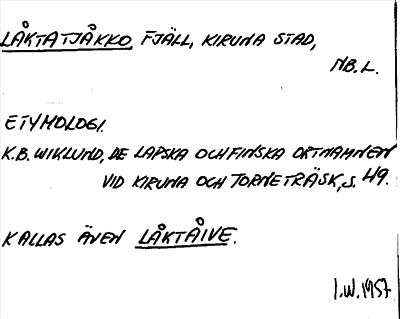 LÅKTATJÅKKO FJÄLL, KIRUNA STAD,
NB.L.
ETYMOLOGI.
K.B. WIKLUND, DE LAPSKA OCH FINSKA ORTNAMNEN
VID KIRUNA OCH TORNETRÄSK, S. 49.
KALLAS ÄVEN LÅKTÅIVE.
I.W. 1957